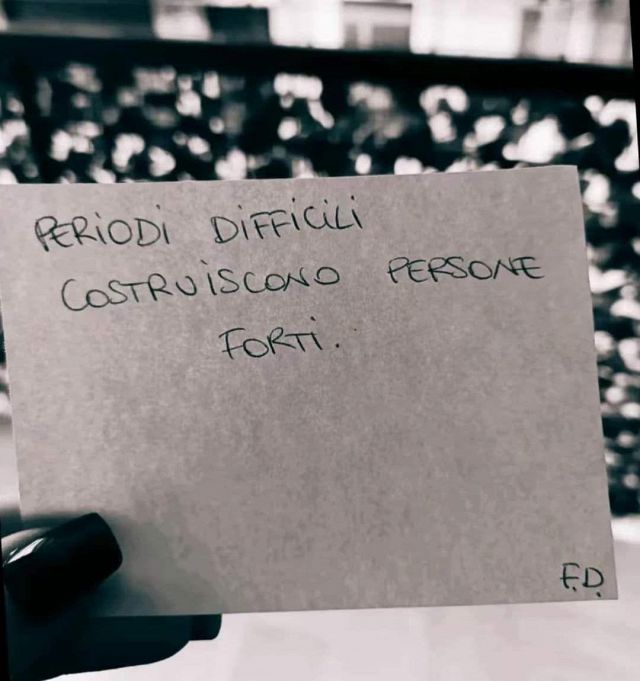 PERIODI DIFFICILI
COSTRUISCONO PERSONE
FORTI.
F.D.